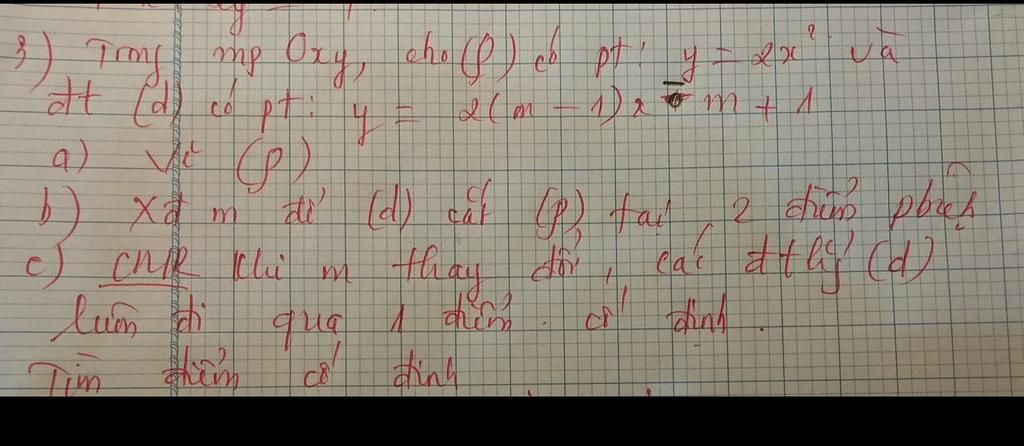 3) Trong mp Oxy, cho (P) có pt: y = 2x² và
đt (d) có pt: y = 2(m - 1)x - m + 1
a) Vẽ (P)
b) Xđ m để (d) cắt (P) tại 2 điểm pbiệt
c) CMR khi m thay đổi, các đthg (d)
luôn đi qua 1 điểm cố định.
Tìm điểm cố định